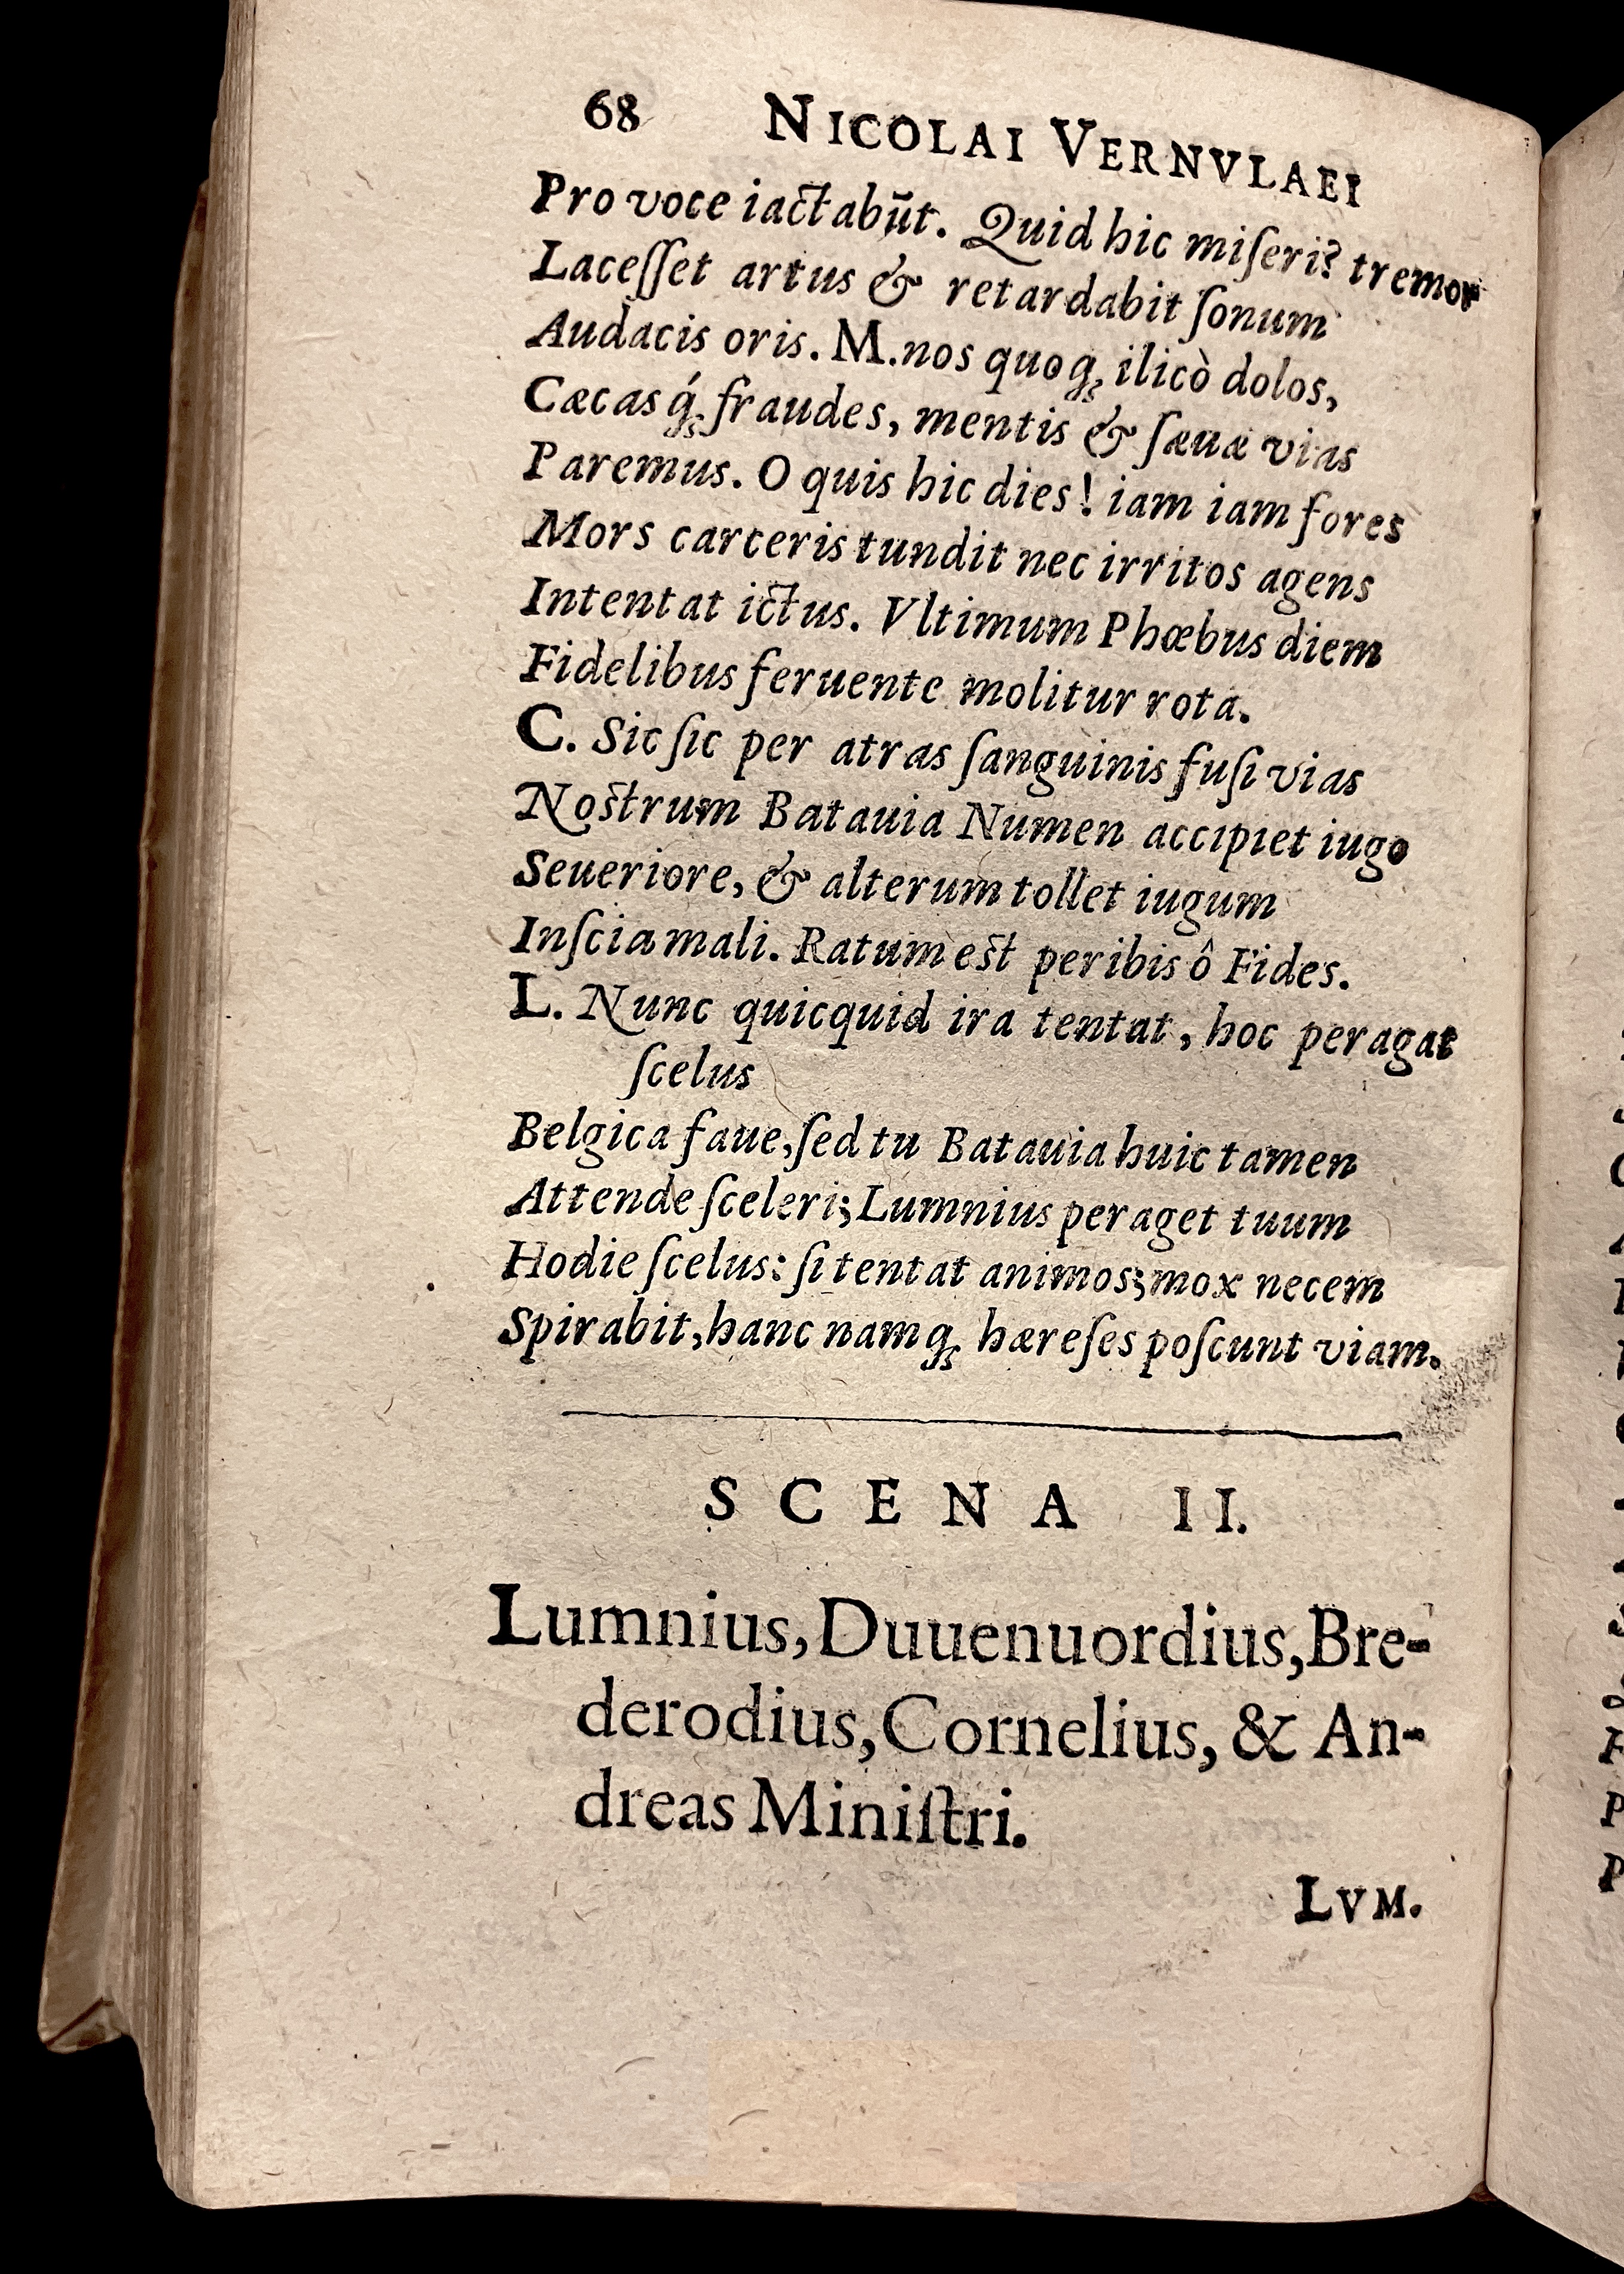 68 NICOLAI VERNVLAEI
Pro voce iactabūt. Quid hic miſeri? tremor
Laceſſet artus & retardabit ſonum
Audacis oris. M. nos quoq; ilicò dolos,
Cæcasq́; fraudes, mentis & ſæuæ vias
Paremus. O quis hic dies! iam iam fores
Mors carceris tundit nec irritos agens
Intentat ictus. Vltimum Phœbus diem
Fidelibus feruente molitur rota.
C. Sic ſic per atras ſanguinis fuſi vias
Noſtrum Batauia Numen accipiet iugo
Seueriore, & alterum tollet iugum
Inſcia mali. Ratum eſt peribis ô Fides.
L. Nunc quicquid ira tentat, hoc peragat
ſcelus
Belgica faue, ſed tu Batauia huic tamen
Attende ſceleri; Lumnius peraget tuum
Hodie ſcelus: ſi tentat animos; mox necem
Spirabit, hanc namq; hæreſes poſcunt viam.
SCENA II.
Lumnius, Duuenuordius, Bre-
derodius, Cornelius, & An-
dreas Miniſtri.
LVM.